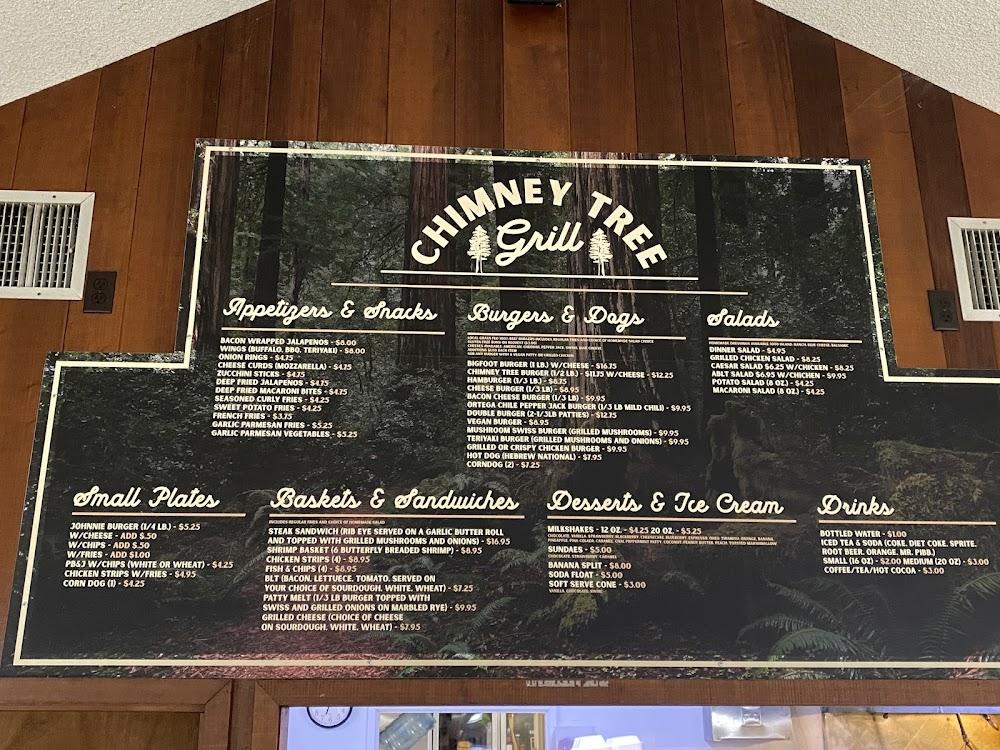 CHIMNEY TREE
Grill
Appetizers & Snacks
BACON WRAPPED JALAPENOS - $8.00
WINGS (BUFFALO, BBQ, TERIYAKI) - $8.00
ONION RINGS - $4.75
CHEESE CURDS (MOZZARELLA) - $4.75
ZUCCHINI STICKS - $4.75
DEEP FRIED JALAPENOS - $4.75
DEEP FRIED MACARONI BITES - $4.75
SEASONED CURLY FRIES - $4.25
SWEET POTATO FRIES - $4.25
FRENCH FRIES - $3.75
GARLIC PARMESAN FRIES - $5.25
GARLIC PARMESAN VEGETABLES - $5.25
Burgers & Dogs
LOCAL GRASS FED HUMBOLDT BURGERS INCLUDES REGULAR FRIES AND CHOICE OF HOMEMADE SALAD
BIGFOOT BURGER (1 LB.) W/CHEESE - $16.75
CHIMNEY TREE BURGER (1/2 LB.) - $11.75 W/CHEESE - $12.25
HAMBURGER (1/3 LB.) - $8.75
CHEESE BURGER (1/3 LB) - $8.95
BACON CHEESE BURGER (1/3 LB) - $9.95
ORTEGA CHILE PEPPER JACK BURGER (1/3 LB MILD CHILI) - $9.95
DOUBLE BURGER (2-1/3LB PATTIES) - $12.75
VEGAN BURGER - $8.95
MUSHROOM SWISS BURGER (GRILLED MUSHROOMS) - $9.95
TERIYAKI BURGER (GRILLED MUSHROOMS AND ONIONS) - $9.95
GRILLED OR CRISPY CHICKEN BURGER - $9.95
HOT DOG (HEBREW NATIONAL) - $7.95
CORNDOG (2) - $7.25
Salads
DINNER SALAD - $4.95
GRILLED CHICKEN SALAD - $8.25
CAESAR SALAD $6.25 W/CHICKEN - $8.25
ABLT SALAD $6.95 W/CHICHEN - $9.95
POTATO SALAD (8 OZ.) - $4.25
MACARONI SALAD (8 OZ.) - $4.25
Small Plates
JOHNNIE BURGER (1/4 LB.) - $5.25
W/CHEESE - ADD $.50
W/CHIPS - ADD $.50
W/FRIES - ADD $1.00
PB&J W/CHIPS (WHITE OR WHEAT) - $4.25
CHICKEN STRIPS W/FRIES - $4.95
CORN DOG (1) - $4.25
Baskets & Sandwiches
INCLUDES REGULAR FRIES AND CHOICE OF HOMEMADE SALAD
STEAK SANDWICH (RIB EYE SERVED ON A GARLIC BUTTER ROLL
AND TOPPED WITH GRILLED MUSHROOMS AND ONIONS) - $16.95
SHRIMP BASKET (6 BUTTERFLY BREADED SHRIMP) - $8.95
CHICKEN STRIPS (4) - $8.95
FISH & CHIPS (4) - $8.95
BLT (BACON, LETTUCE, TOMATO, SERVED ON
YOUR CHOICE OF SOURDOUGH, WHITE, WHEAT) - $7.25
PATTY MELT (1/3 LB BURGER TOPPED WITH
SWISS AND GRILLED ONIONS ON MARBLED RYE) - $9.95
GRILLED CHEESE (CHOICE OF CHEESE
ON SOURDOUGH, WHITE, WHEAT) - $7.95
Desserts & Ice Cream
MILKSHAKES - 12 OZ. - $4.25 20 OZ. - $5.25
SUNDAES - $5.00
CHOCOLATE, STRAWBERRY, CARAMEL
BANANA SPLIT - $8.00
SODA FLOAT - $5.00
SOFT SERVE CONE - $3.00
VANILLA, CHOCOLATE, SWIRL
Drinks
BOTTLED WATER - $1.00
ICED TEA & SODA (COKE, DIET COKE, SPRITE,
ROOT BEER, ORANGE, MR. PIBB.)
SMALL (16 OZ) - $2.00 MEDIUM (20 OZ) - $3.00
COFFEE/TEA/HOT COCOA - $3.00